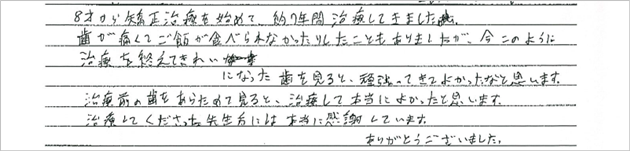 8才から矯正治療を始めて、約7年間治療してきました。
歯が痛くてご飯が食べられなかったりしたこともありましたが、今このように
治療を終えてきれい
になった歯を見ると、頑張ってきてよかったなと思います。
治療前の歯をあらためて見ると、治療して本当によかったと思います。
治療してくださった先生方には本当に感謝しています。
ありがとうございました。